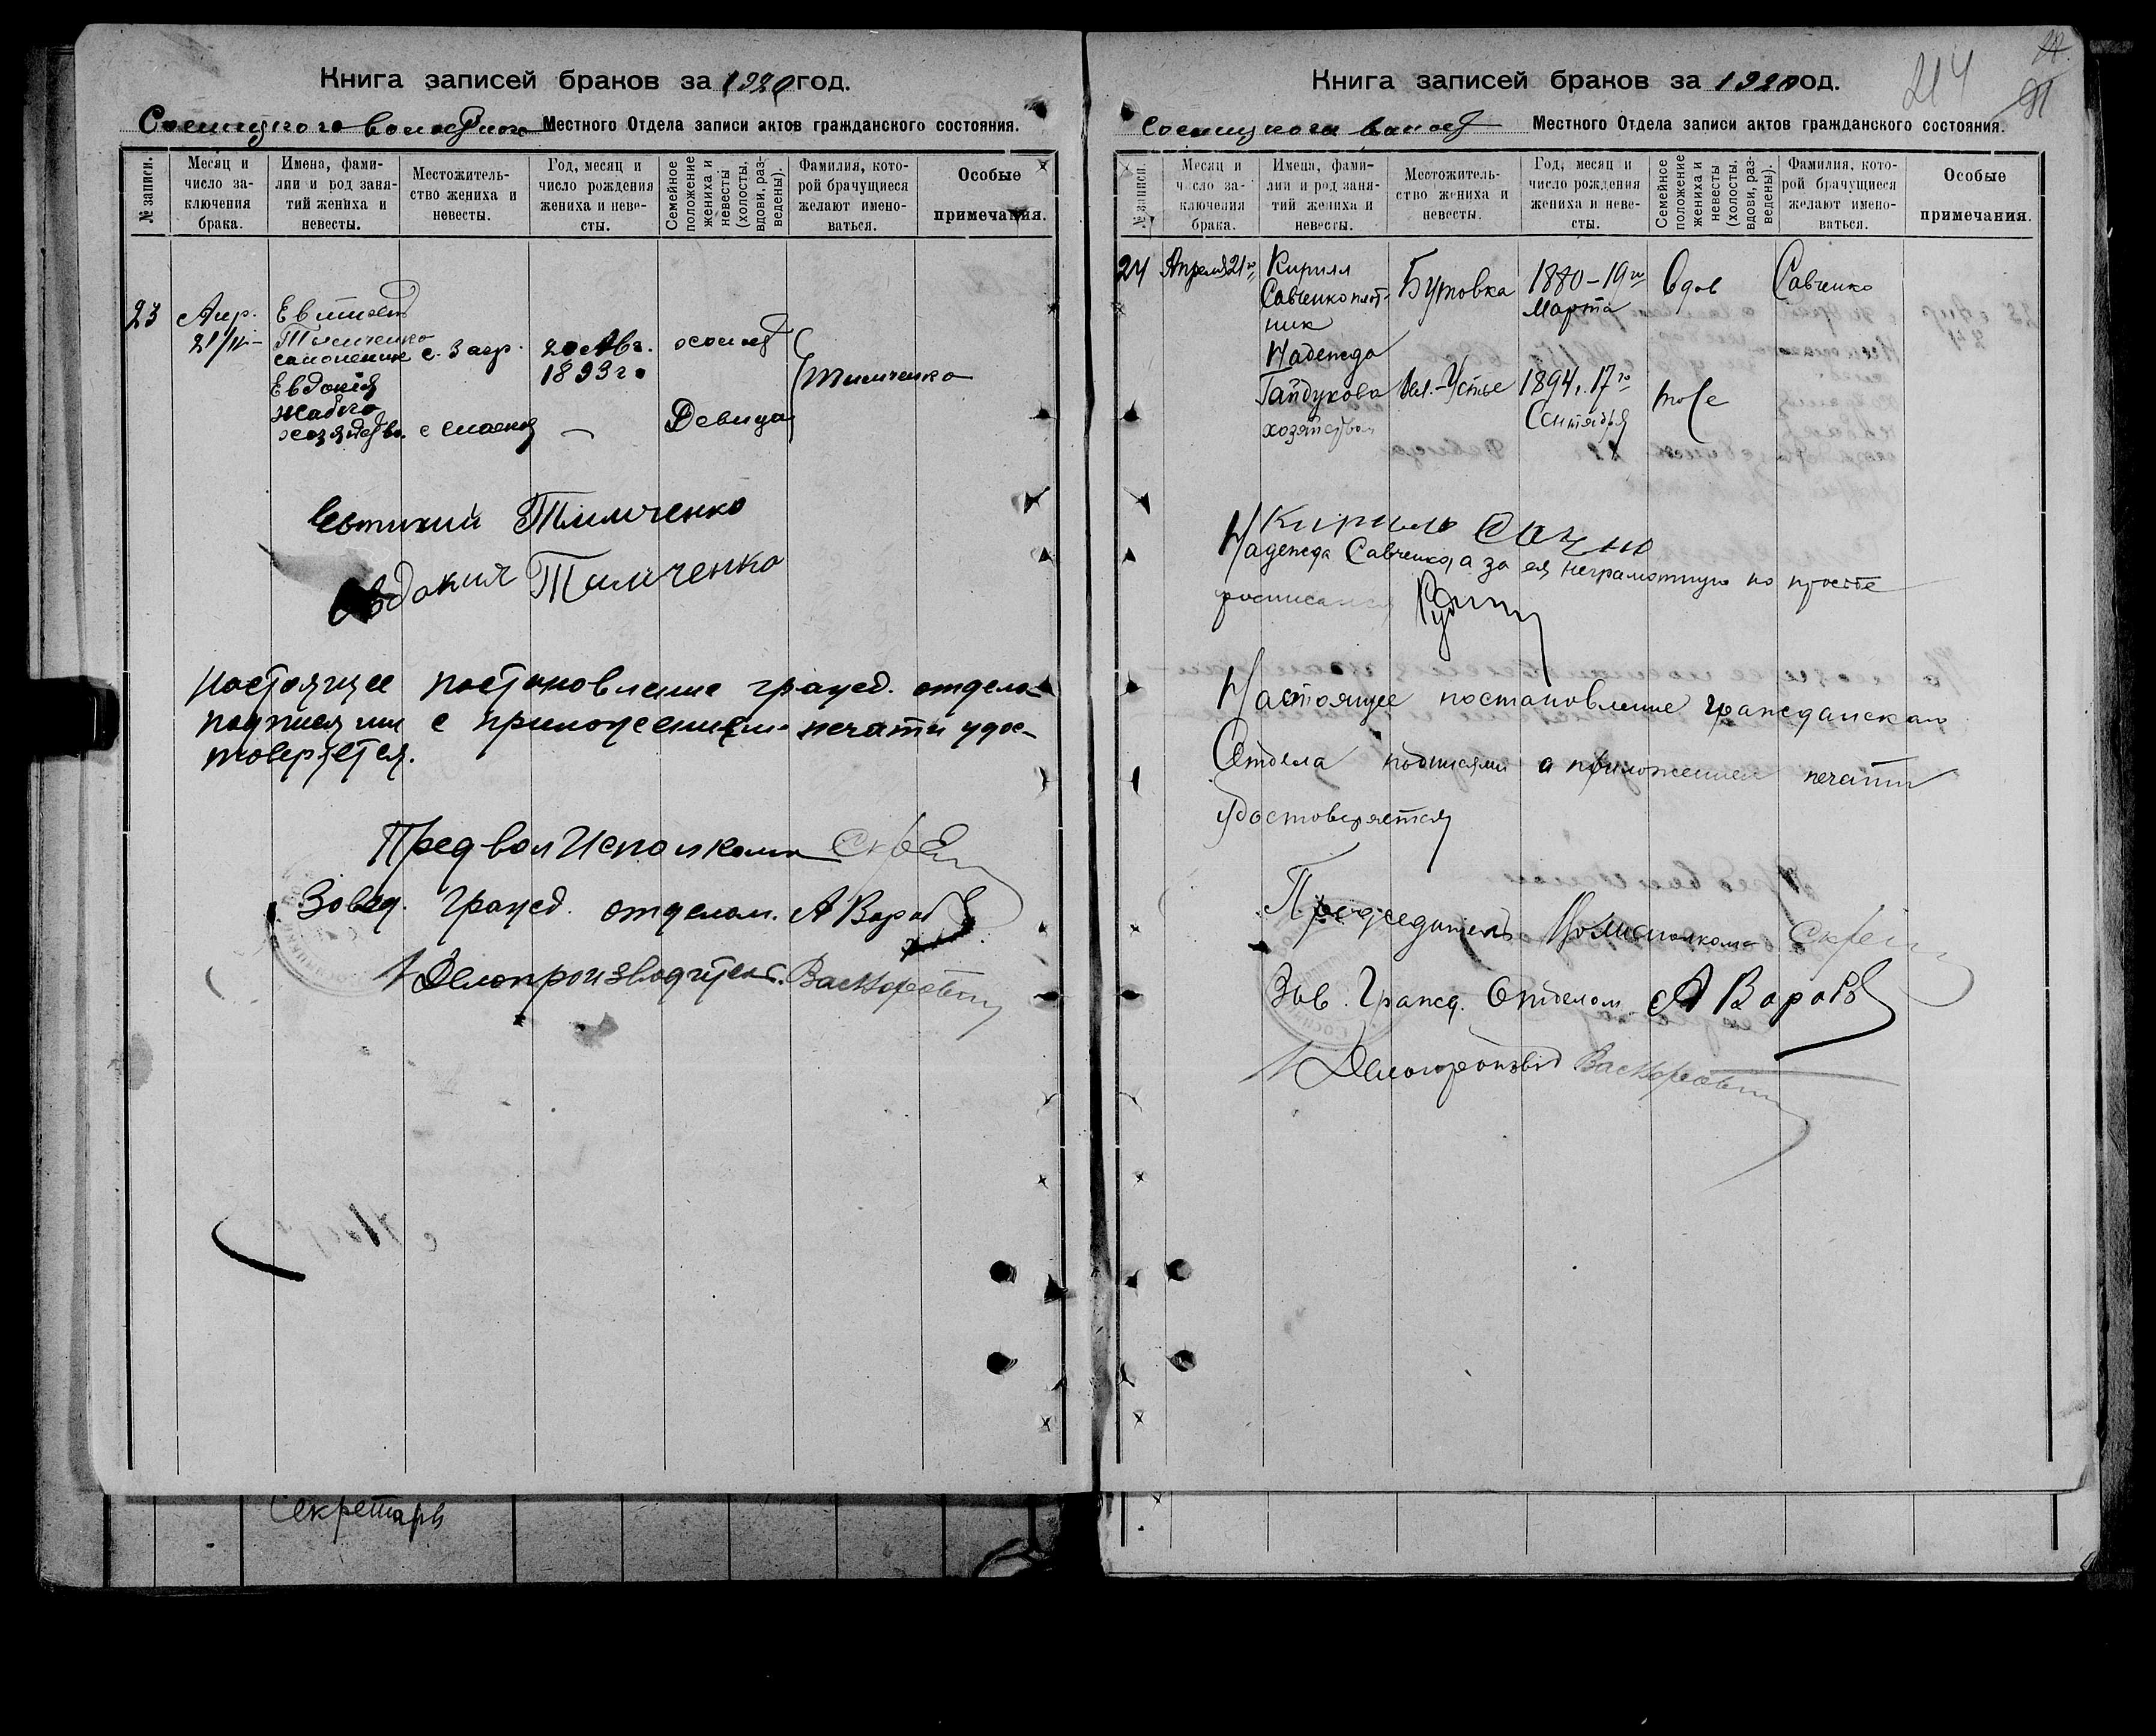 Книга записей браков за 1920 год.
Местного Отдела записи актов гражданского состояния.
№ записи.
Месяц и число заключения брака.
Имена, фамилии и род занятий жениха и невесты.
Местожительство жениха и невесты.
Год, месяц и число рождения жениха и невесты.
Семейное положение жениха и невесты (холосты, вдовы, разведены).
Фамилия, которой брачущиеся желают именоваться.
Особые примечания.
23
Апр.
21/
Тимченко
20 Авг.
1893 г.
Тимченко
Евдокия
Девица
Евтихий Тимченко
Евдокия Тимченко
Настоящее постановление гражд. отдела
подписями с приложением печати удос-
товеряется.
Пред вол Исполкома
Завед. Гражд. отделом. А Вороб
Делопроизводитель.
Секретарь
Книга записей браков за 1920 год.
214
91
Местного Отдела записи актов гражданского состояния.
№ записи.
Месяц и число заключения брака.
Имена, фамилии и род занятий жениха и невесты.
Местожительство жениха и невесты.
Год, месяц и число рождения жениха и невесты.
Семейное положение жениха и невесты (холосты, вдовы, разведены).
Фамилия, которой брачущиеся желают именоваться.
Особые примечания.
24
Апреля 21го
Кирилл
Савченко плот-
ник
Бутовка
1880 - 19го
Марта
Вдов
Савченко
Надежда
Гайдукова
хозяйство
Устье
1894 г. 17го
Сентября
тоже
Надежда Савченко, а за ея неграмотную по просьбе
росписался
Настоящее постановление Гражданскаго
Отдела подписями с приложением печати
удостоверяется
Председатель Волисполкома
Зав. Гражд. Отделом А Вороб
Делопроизвод